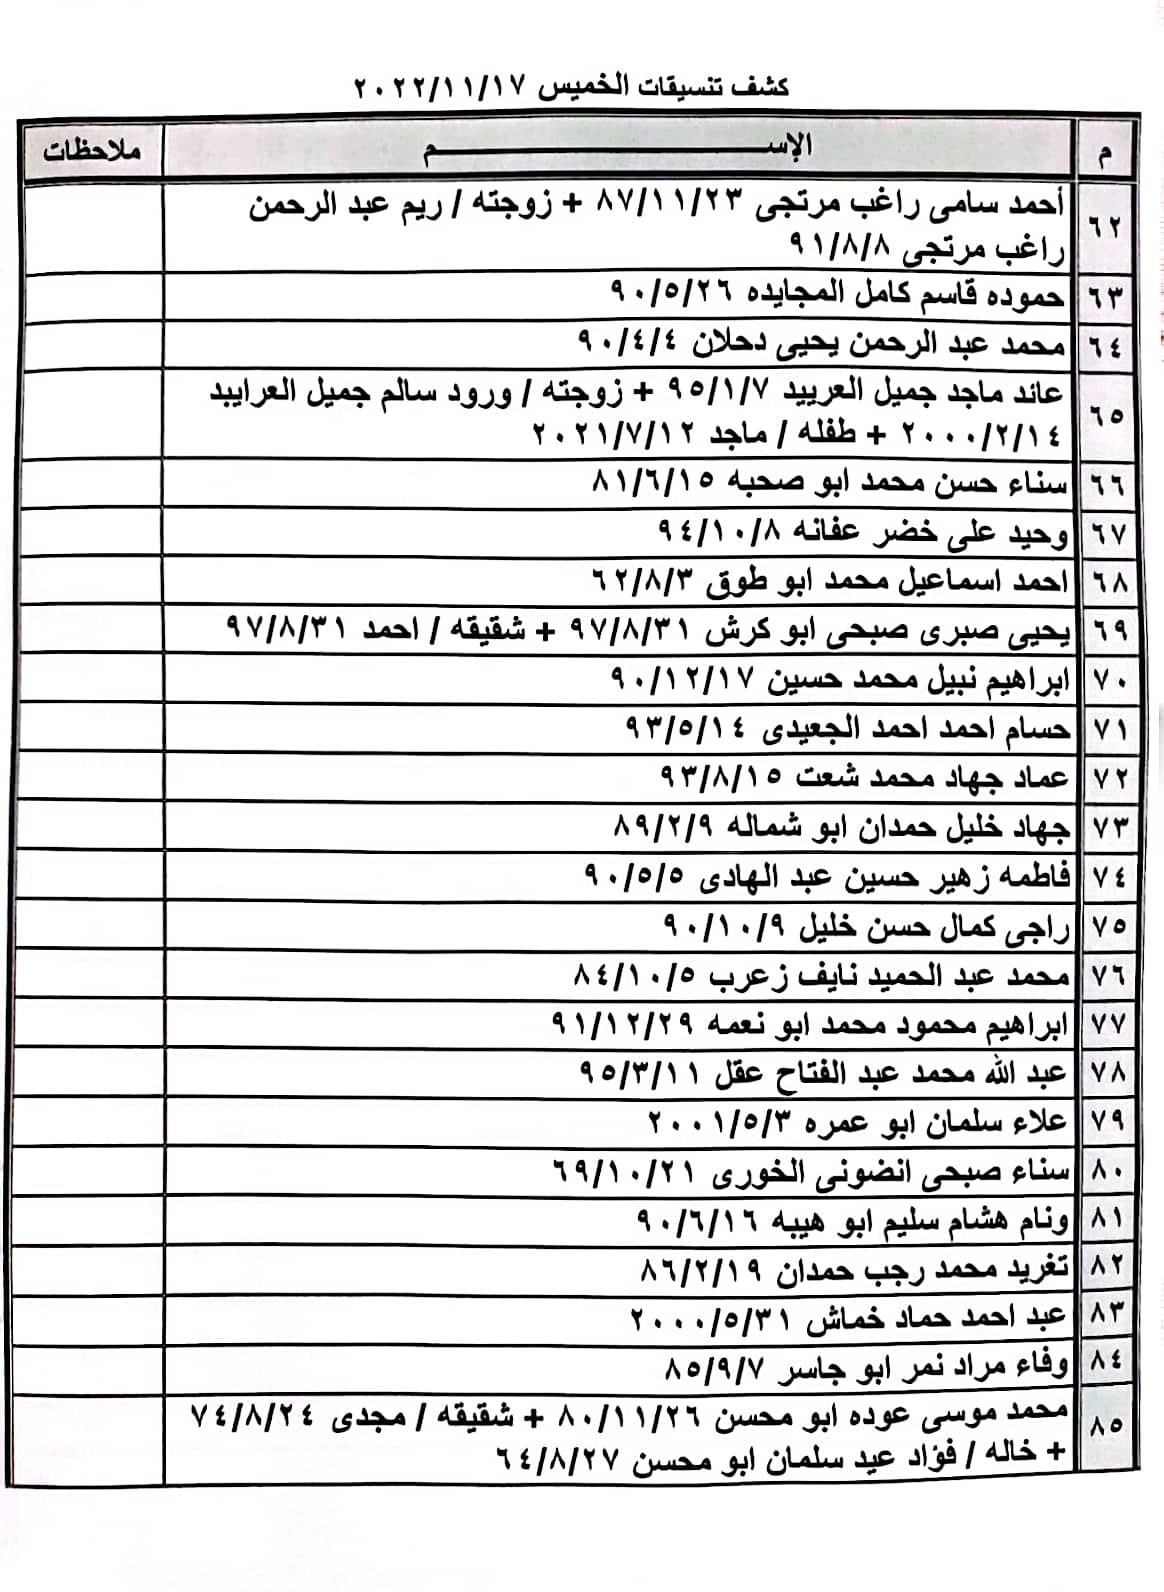 كشف تنسيقات الخميس ٢٠٢٢/١١/١٧
م الإســـــــــــم ملاحظات
٦٢ أحمد سامى راغب مرتجى ٨٧/١١/٢٣ + زوجته / ريم عبد الرحمن
راغب مرتجى ٩١/٨/٨
٦٣ حموده قاسم كامل المجايده ٩٠/٥/٢٦
٦٤ محمد عبد الرحمن يحيى دحلان ٩٠/٤/٤
٦٥ عائد ماجد جميل العرييد ٩٥/١/٧ + زوجته / ورود سالم جميل العراييد
٢٠٠٠/٢/١٤ + طفله / ماجد ٢٠٢١/٧/١٢
٦٦ سناء حسن محمد ابو صحبه ٨١/٦/١٥
٦٧ وحيد على خضر عفانه ٩٤/١٠/٨
٦٨ احمد اسماعيل محمد ابو طوق ٦٢/٨/٣
٦٩ يحيى صبرى صبحى ابو كرش ٩٧/٨/٣١ + شقيقه / احمد ٩٧/٨/٣١
٧٠ ابراهيم نبيل محمد حسين ٩٠/١٢/١٧
٧١ حسام احمد احمد الجعيدى ٩٣/٥/١٤
٧٢ عماد جهاد محمد شعت ٩٣/٨/١٥
٧٣ جهاد خليل حمدان ابو شماله ٨٩/٢/٩
٧٤ فاطمه زهير حسين عبد الهادى ٩٠/٥/٥
٧٥ راجى كمال حسن خليل ٩٠/١٠/٩
٧٦ محمد عبد الحميد نايف زعرب ٨٤/١٠/٥
٧٧ ابراهيم محمود محمد ابو نعمه ٩١/١٢/٢٩
٧٨ عبد الله محمد عبد الفتاح عقل ٩٥/٣/١١
٧٩ علاء سلمان ابو عمره ٢٠٠١/٥/٣
٨٠ سناء صبحى انضونى الخورى ٦٩/١٠/٢١
٨١ ونام هشام سليم ابو هيبه ٩٠/٦/١٦
٨٢ تغريد محمد رجب حمدان ٨٦/٢/١٩
٨٣ عبد احمد حماد خماش ٢٠٠٠/٥/٣١
٨٤ وفاء مراد نمر ابو جاسر ٨٥/٩/٧
٨٥ محمد موسى عوده ابو محسن ٨٠/١١/٢٦ + شقيقه / مجدى ٧٤/٨/٢٤
+ خاله / فؤاد عيد سلمان ابو محسن ٦٤/٨/٢٧